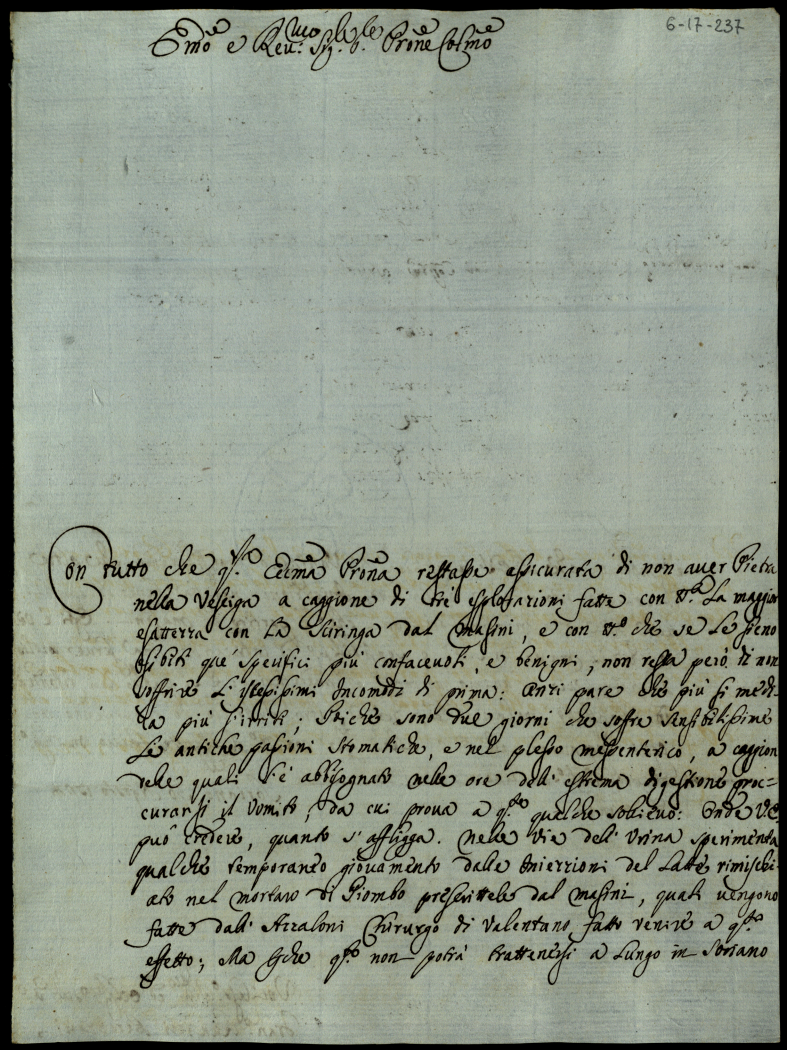 6-17-237
Emõ e Reu.mo Sig.r P.rone Colmõ
Con tutto che q.sta Eccma Prona restasse assicurata di non auer Pietra
nella Vessiga a caggione di tre esplorazioni fatte con tt.a La maggior
esatterza con La Sciringa dal Masini, e con tt.o che se Le sieno
esibiti que' specifici più confaceuoli, e benigni, non resta però di non
soffrire L'istessissimi Incomodi di prima: Anzi pare che più si medi-
ca più s'irriti; Poiché sono due giorni che soffre sensibilissime
Le antiche passioni stomatiche, e nel plesso messenterico, a caggion
delle quali s'è abbisognato nelle ore dell'estrema digestione proc=
curarsi il Vomito, da cui proua a q.sto qualche sollieuo: Onde V.E.
può credere, quanto s'affligga. Nelle vie dell'Vrina sperimenta
qualche temporaneo giouamento dalle Inierzioni del Latte rimischi-
ato nel mortaro di Piombo prescrittele dal Masini, quali uengono
fatte dall'Azzaloni Chirurgo di Valentano fatto venire a q.sto
effetto; Ma q.sto non potrà trattenersi a Lungo in Soriano